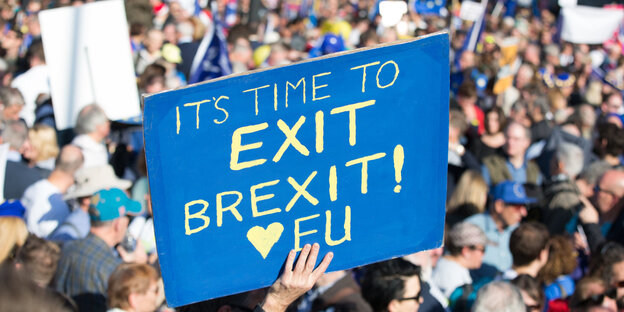 IT'S TIME TO
EXIT
BREXIT!
♥EU